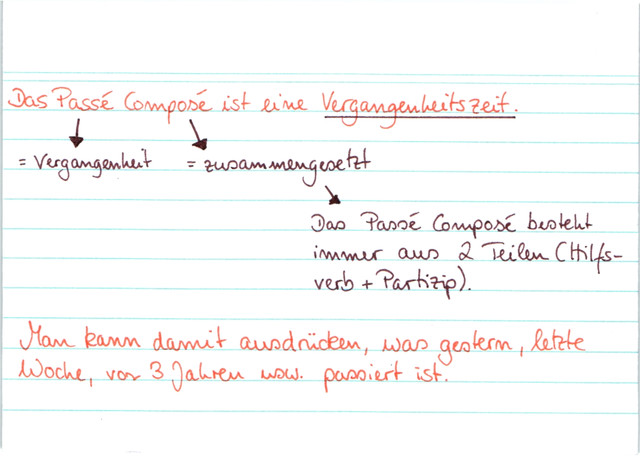 Das Passé Composé ist eine Vergangenheitszeit.
= Vergangenheit = zusammengesetzt
Das Passé Composé besteht
immer aus 2 Teilen (Hilfs-
verb + Partizip).
Man kann damit ausdrücken, was gestern, letzte
Woche, vor 3 Jahren usw. passiert ist.